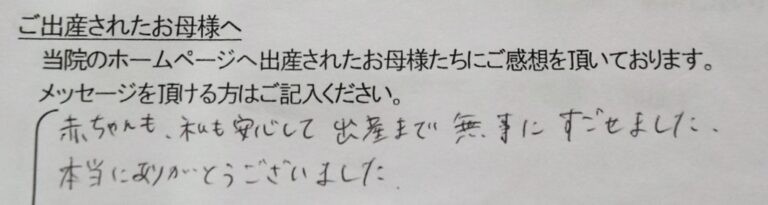 ご出産されたお母様へ
当院のホームページへ出産されたお母様たちにご感想を頂いております。
メッセージを頂ける方はご記入ください。
赤ちゃんも、私も安心して出産まで無事にすごせました、
本当にありがとうございました.